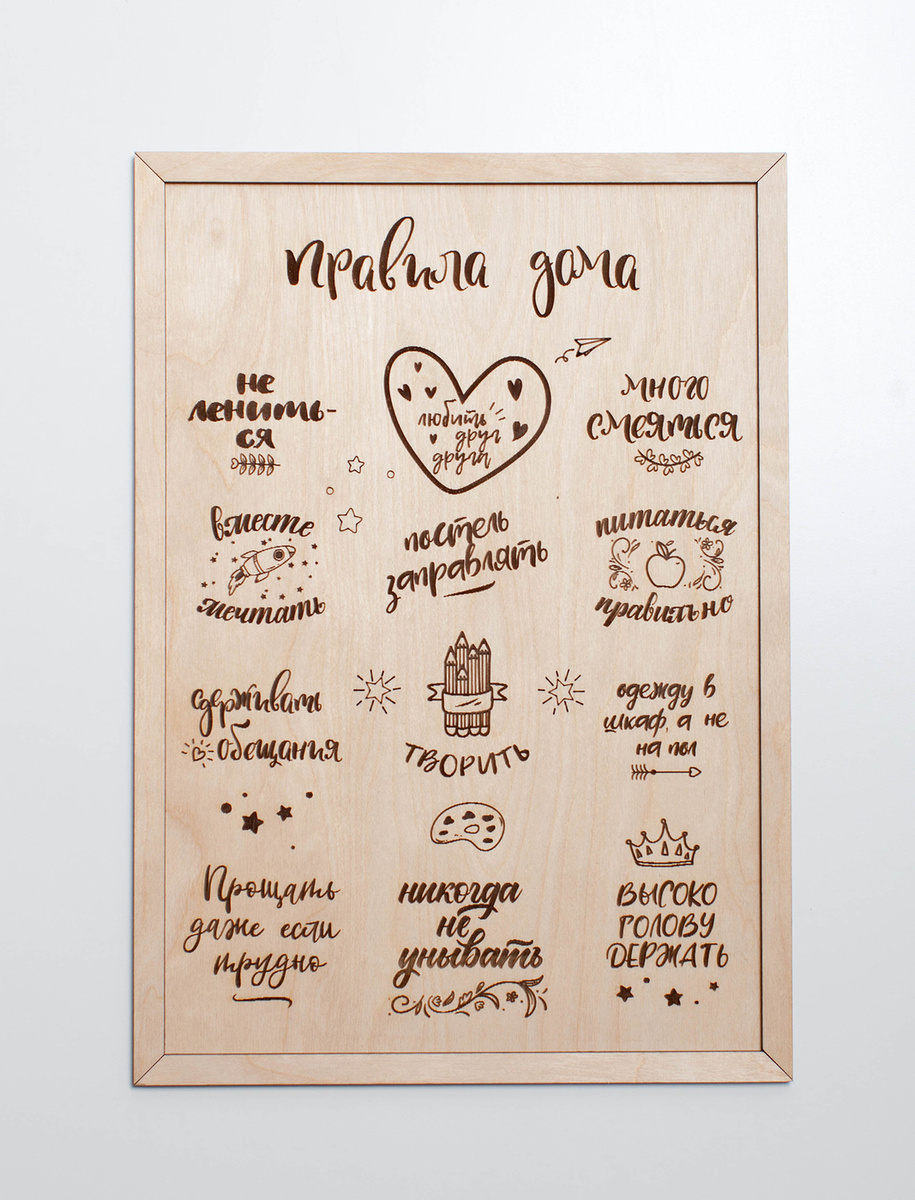 правила дома
не
ленить-
ся
любить
друг
друга
много
смеяться
вместе
мечтать
постель
заправлять
питаться
правильно
сдерживать
обещания
творить
одежду в
шкаф, а не
на пол
Прощать
даже если
трудно
никогда
не
унывать
ВЫСОКО
ГОЛОВУ
ДЕРЖАТЬ